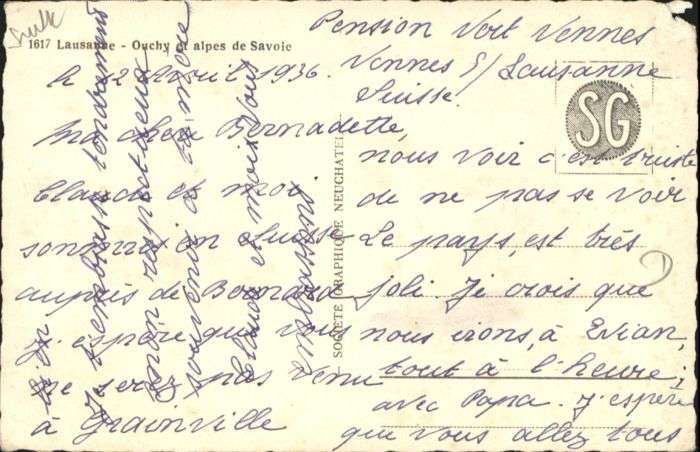 Suisse
1617 Lausanne - Ouchy et alpes de Savoie
Pension Vert Vennes
Vennes s/ Lausanne
Suisse.
le 12 Avril 1936.
Ma chère Bernadette,
Claude et moi
sommes en Suisse
auprès de Bernard
j'espère que vous
ne serez pas venu
à Grainville
nous voir c'est triste
de ne pas se voir
Le pays, est très
joli Je crois que
nous irons, à Evian,
tout à l'heure;
avec Papa. j'espère
que vous allez tous
bien
je t'embrasse tendrement
mon respectueux
souvenir à ta mère
Claude et moi vous
embrassons
SOCIÉTÉ GRAPHIQUE NEUCHATEL
SG